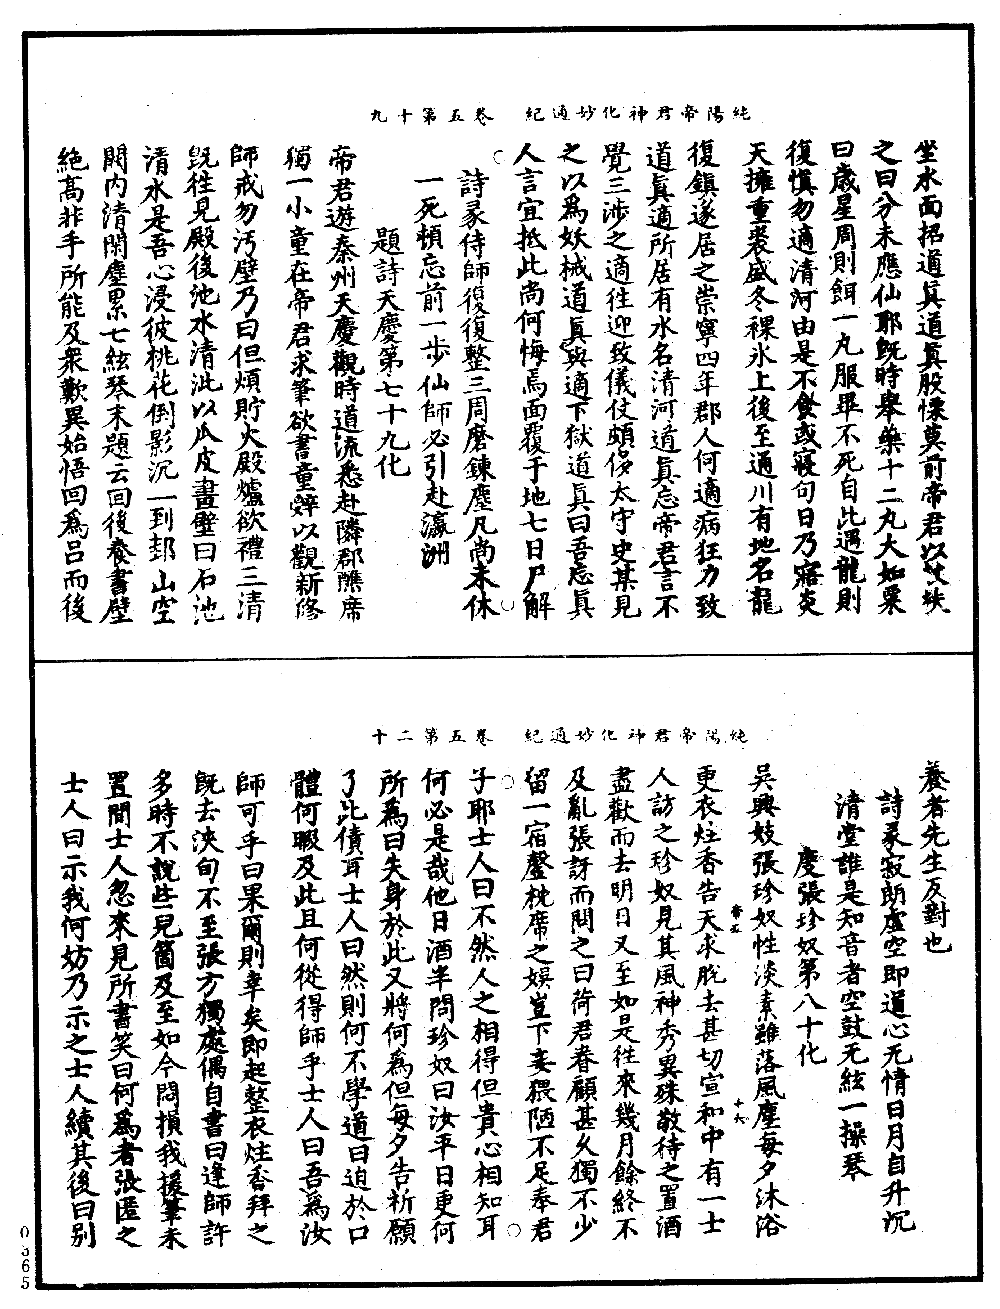 純陽帝君神化妙通紀　卷五第十九
坐水面招道眞道眞股慄莫前帝君以丈块
之曰分未應仙耶既時舉藥十二丸大如粟
曰歲星周則餌一丸服畢不死自此遇龍則
復慎勿適清河由是不食或寢旬日乃寤炎
天擁重裘盛冬裸氷上後至通川有地名龍
復鎮遂居之崇寧四年郡人何適病狂力致
道眞適所居有水名清河道眞忘帝君言不
覺三涉之適往迎致儀仗頗侈太守史某見
之以爲妖械道眞與適下獄道眞曰吾忘眞
人言宜抵此尚何悔焉面覆于地七日尸解
詩彖侍師復復整三周磨鍊塵凡尚未休
一死頓忘前一步仙師必引赴瀛洲
題詩天慶第七十九化
帝君遊秦州天慶觀時道流悉赴隣郡醮席
獨一小童在帝君求筆欲書童辭以觀新修
師戒勿汚壁乃曰但煩貯火殿爐欲禮三清
既徃見殿後池水清泚以瓜皮畫壁曰石池
清水是吾心浸彼桃花倒影沉一到邽山空
闕内清閑塵累七絃琴末題云回後養書壁
絶高非手所能及衆歎異始悟回爲吕而後
純陽帝君神化妙通紀　卷五第二十
養者先生反對也
詩彖寂朗虛空即道心无情日月自升沉
清堂誰是知音者空鼓无絃一操琴
慶張珍奴第八十化
吳興妓張珍奴性淡素雖落風塵每夕沐浴
更衣炷香告天求脫去甚切宣和中有一士
人訪之珍奴見其風神秀異殊敬待之置酒
盡歡而去明日又至如是徃來幾月餘終不
及亂張訝而問之曰荷君眷顧甚久獨不少
留一宿罄枕席之娯豈下妾猥陋不足奉君
子耶士人曰不然人之相得但貴心相知耳
何必是哉他日酒半問珍奴曰汝平日更何
所爲曰失身於此又將何爲但每夕告祈願
了此債耳士人曰然則何不學道曰迫於口
體何暇及此且何從得師乎士人曰吾爲汝
師可乎曰果爾則幸矣即起整衣炷香拜之
既去浹旬不至張方獨處偶自書曰逢師許
多時不說些兒箇及至如今悶損我援筆未
置間士人忽來見所書笑曰何爲者張匿之
士人曰示我何妨乃示之士人續其後曰别
帝五
十六
0365